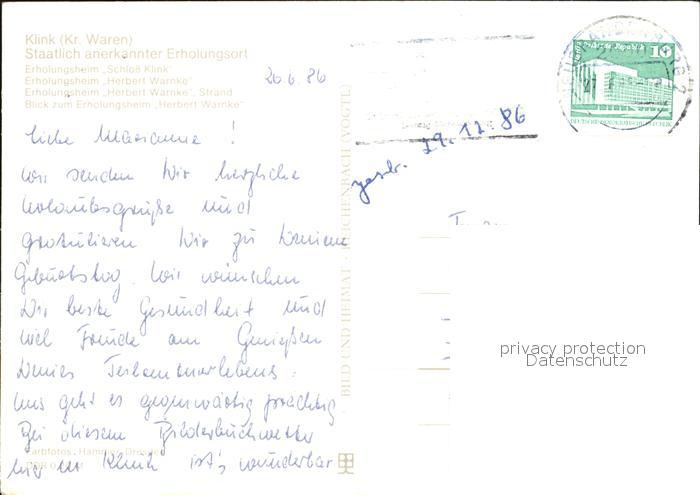 Klink (Kr. Waren)
Staatlich anerkannter Erholungsort
Erholungsheim „Schloß Klink"
Erholungsheim „Herbert Warnke"
Erholungsheim „Herbert Warnke", Strand
Blick zum Erholungsheim „Herbert Warnke"
20.6.86
10
19.12.86
Liebe Marianne!
wir senden Dir herzliche
Urlaubsgrüße und
gratulieren Dir zu Deinem
Geburtstag. Wir wünschen
Dir beste Gesundheit und
viel Freude am Genießen
Deines
Uns geht es gegenwärtig prächtig
Bei diesem Bilderbuchwetter
hier in Klink ist's wunderbar
BILD UND HEIMAT · REICHENBACH (VOGTL)
privacy protection
Datenschutz